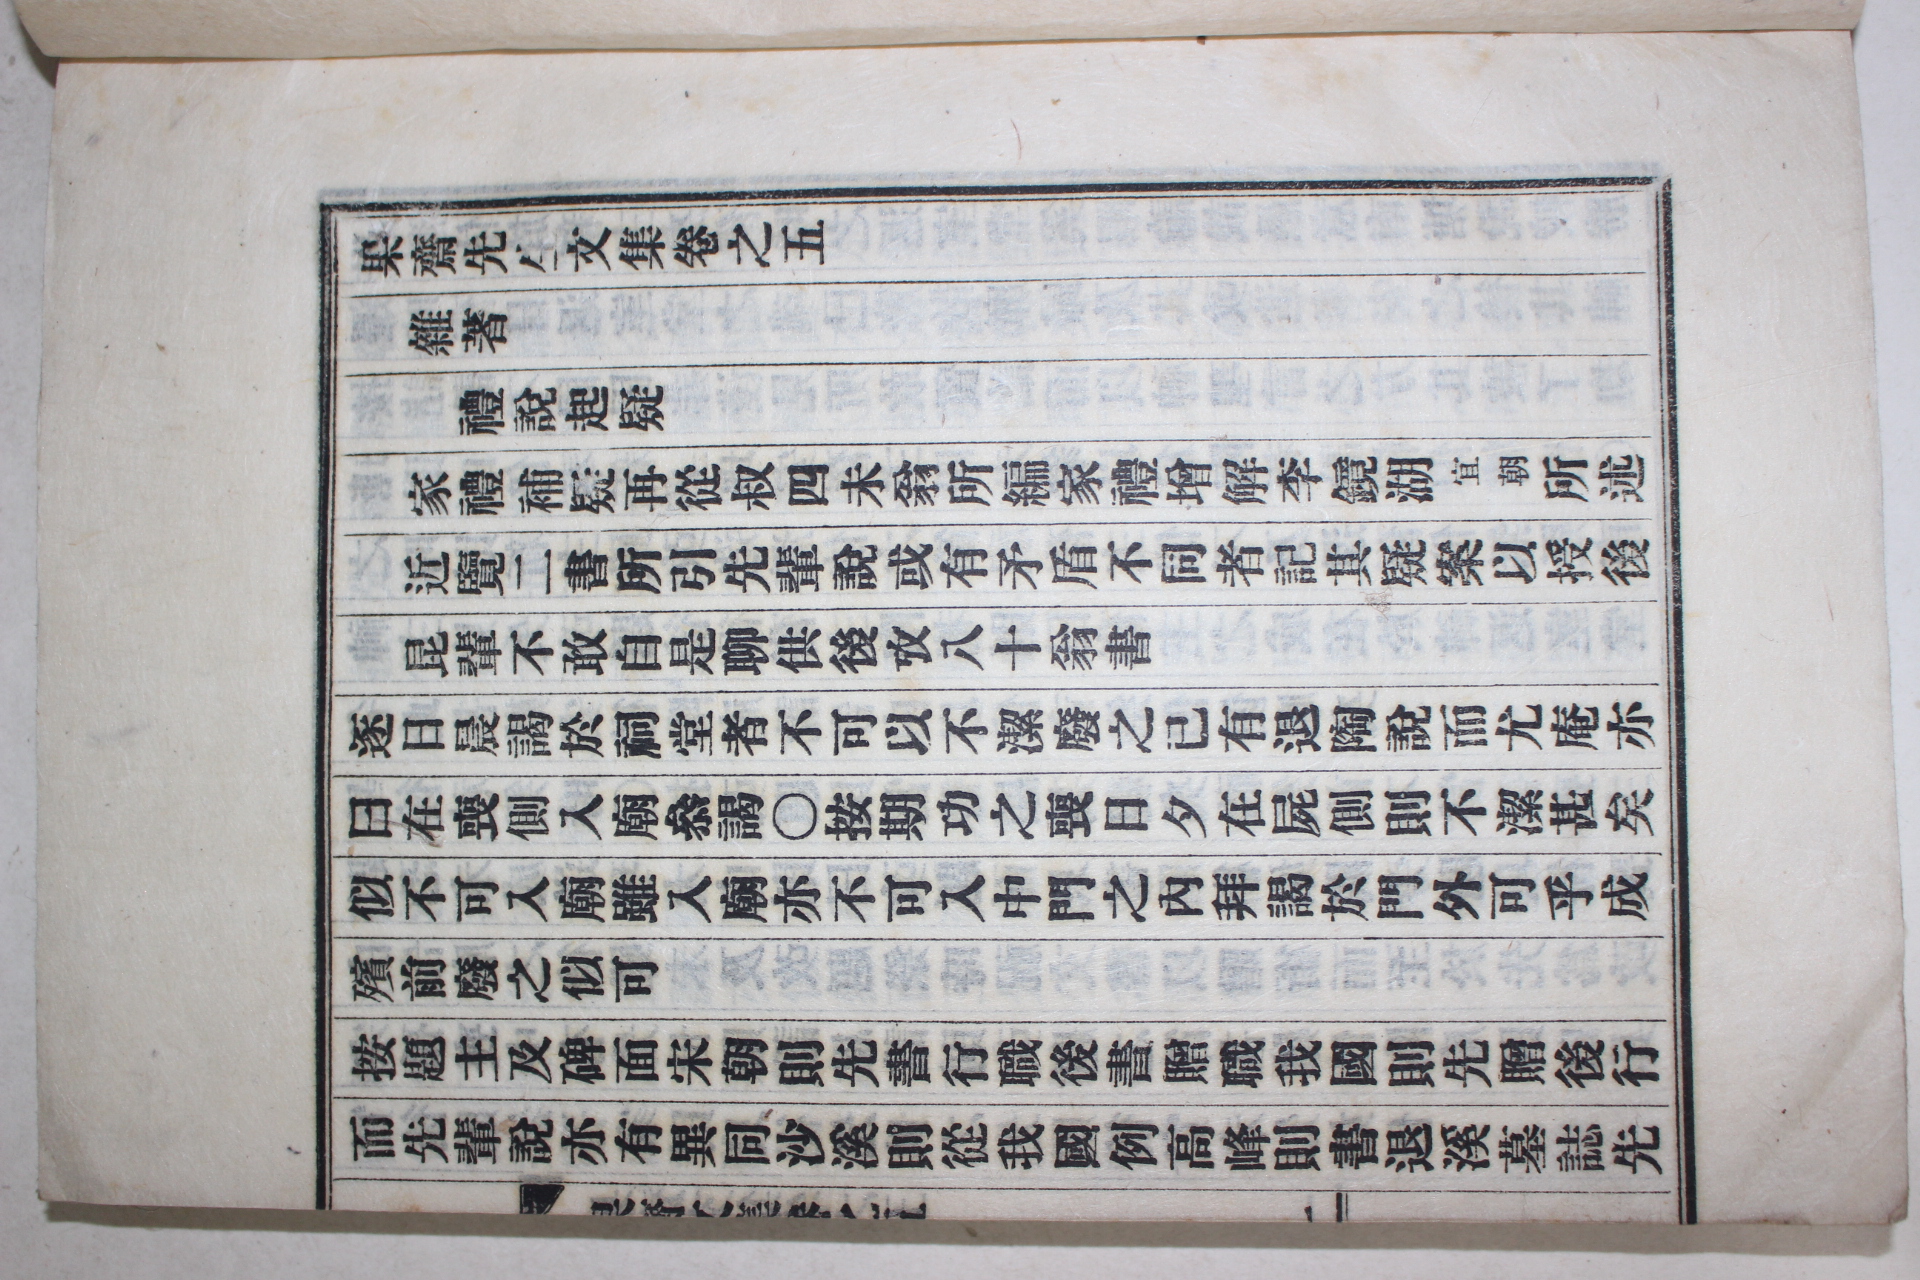 果齋先生文集卷之五
雜著
禮說起疑
家禮補疑再從叔四未翁所編家禮增解李鏡湖宜朝所述
近覽二書所引先輩說或有矛盾不同者記其疑案以授後
昆輩不敢自是聊供後攷八十翁書
逐日晨謁於祠堂者不可以不潔廢之已有退陶說而尤庵亦
曰在喪側入廟參謁〇按期功之喪日夕在屍側則不潔甚矣
似不可入廟雖入廟亦不可入中門之內拜謁於門外可乎成
殯前廢之似可
按題主及碑面宋朝則先書行職後書贈職我國則先贈後行
而先輩說亦有異同沙溪則從我國例高峰則書退溪墓誌先